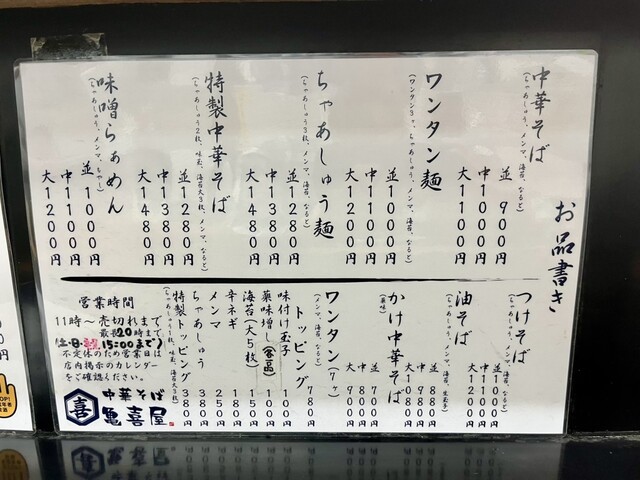 お品書き
中華そば
(ちゃあしゅう、メンマ、海苔、なると)
並 900円
中1000円
大1100円
ワンタン麺
(ワンタン3ヶ、ちゃあしゅう、メンマ、海苔、なると)
並1000円
中1100円
大1200円
ちゃあしゅう麺
(ちゃあしゅう3枚、メンマ、海苔、なると)
並1280円
中1380円
大1480円
特製中華そば
(ちゃあしゅう2枚、味玉、海苔大3枚、メンマ、なると)
並1280円
中1380円
大1480円
味噌らぁめん
(ちゃあしゅう、メンマ、もやし)
並1000円
中1100円
大1200円
つけそば
(ちゃあしゅう、メンマ、海苔、なると)
並1000円
中1100円
大1200円
油そば
(ちゃあしゅう、メンマ、海苔、生玉子)
並 780円
中 880円
大 980円
かけ中華そば
(薬味)
並 700円
中 800円
大 900円
ワンタン(7ヶ)
(メンマ、海苔、なると)
780円
トッピング
味付け玉子 100円
薬味増し(各一品) 100円
海苔(大5枚) 150円
辛ネギ 180円
メンマ 250円
ちゃあしゅう 380円
特製トッピング 380円
(ちゃあしゅう1枚、味玉、海苔大3枚)
営業時間
11時～売切れまで
最長20時まで
(土・日・祭日15:00まで)
不定休のため営業日は
店内掲示のカレンダー
をご確認ください。
喜
中華そば
亀喜屋
円